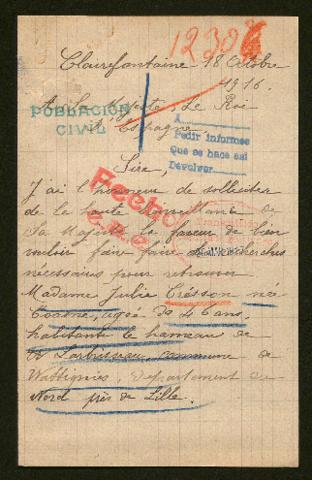 1230
Clairefontaine 18 Octobre
1916.
A Sa Majesté, Le Roi
d'Espagne
POBLACIÓN
CIVIL
A
Pedir informes
Que se hace así
Devolver
Sire,
J'ai l'honneur de solliciter
de la haute bienveillance de
Sa Majesté la faveur de bien
vouloir faire faire des recherches
nécessaires pour retrouver
Madame Julie Crésson née
agée de 46 ans,
habitante le hameau de
commune de
Wattignies, département du
Nord près de Lille.
Recibo